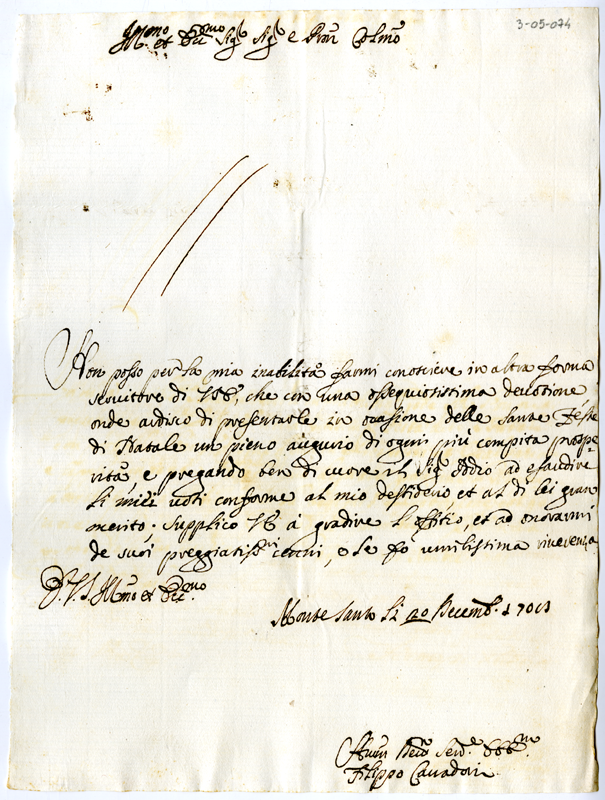 3-05-074
Ill.mo et Ecc.mo Sig.r Sig.r e Pron Col.mo
Non posso per la mia inabilità farmi conoscere in altra forma
servitore di V.E., che con una ossequiosissima devotione
onde ardisco di presentarle in ocasione delle Sante Feste
di Natale un pieno augurio di ogni più compita prospe-
rità, e pregando ben di cuore il Sig.r Iddio ad esaudire
li miei voti conforme al mio desiderio et al di lei gran
merito, supplico V.E. à gradire l'offitio, et ad onorarmi
de suoi preggiatis.mi cenni, e le fò umilissima riverenza
D. V. S. Ill.mo et Ecc.mo
Monte Santo li 20 Decemb.
Filippo